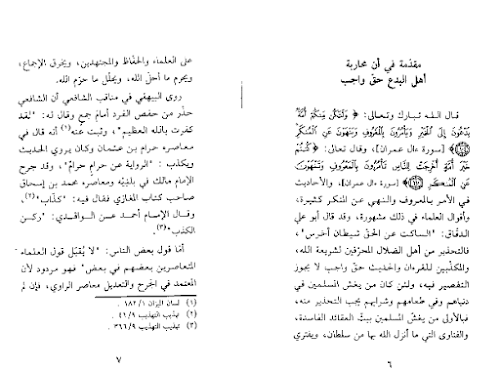 مقدّمة في أن محاربة
أهل البدع حقّ واجب
قال الله تبارك وتعالى: ﴿ وَلْتَكُن مِّنكُمْ أُمَّةٌ
يَدْعُونَ إِلَى الْخَيْرِ وَيَأْمُرُونَ بِالْمَعْرُوفِ وَيَنْهَوْنَ عَنِ الْمُنكَرِ
﴾ [سورة ءال عمران]، وقال تعالى: ﴿ كُنتُمْ
خَيْرَ أُمَّةٍ أُخْرِجَتْ لِلنَّاسِ تَأْمُرُونَ بِالْمَعْرُوفِ وَتَنْهَوْنَ
عَنِ الْمُنكَرِ ﴾ [سورة ءال عمران]، والأحاديث
في الأمر بالمعروف والنهي عن المنكر كثيرة،
وأقوال العلماء في ذلك مشهورة، وقد قال أبو علي
الدقّاق: "الساكت عن الحقّ شيطان أخرس"،
فالتحذير من أهل الضلال المحرّفين لشريعة الله،
والمكذّبين للقرءان والحديث حقّ واجب لا يجوز
التقصير فيه، ولئن كان من يغشّ المسلمين في
دنياهم وفي طعامهم وشرابهم يجب التحذير منه،
فبالأولى من يغشّ المسلمين ببثّ العقائد الفاسدة،
والفتاوى التي ما أنزل الله بها من سلطان، ويفتري
٦
على العلماء والحفّاظ والمجتهدين، ويخرق الإجماع،
ويحرم ما أحلّ الله، ويحلّل ما حرّم الله.
روى البيهقي في مناقب الشافعي أن الشافعي
حذّر من حفص الفرد أمام جمع وقال له: "لقد
كفرت بالله العظيم"، وثبت عنه(١) أنه قال في
معاصره حرام بن عثمان وكان يروي الحديث
ويكذب : "الرواية عن حرام حرام"، وقد جرح
الإمام مالك في بلديّه ومعاصره محمد بن إسحاق
صاحب كتاب المغازي فقال فيه: "كذّاب"(٢)،
وقال الإمام أحمد عن الواقدي: "ركن
الكذب"(٣).
أمّا قول بعض الناس: "لا يُقبَل قول العلماء
المتعاصرين بعضهم في بعض" فهو مردود لأن
المعتمد في الجرح والتعديل معاصر الراوي، فإن لم
(١) لسان الميزان ١٨٢/١ .
(٢) تهذيب التهذيب ٤١/٩ .
(٣) تهذيب التهذيب ٣٦٦/٩ .
٧